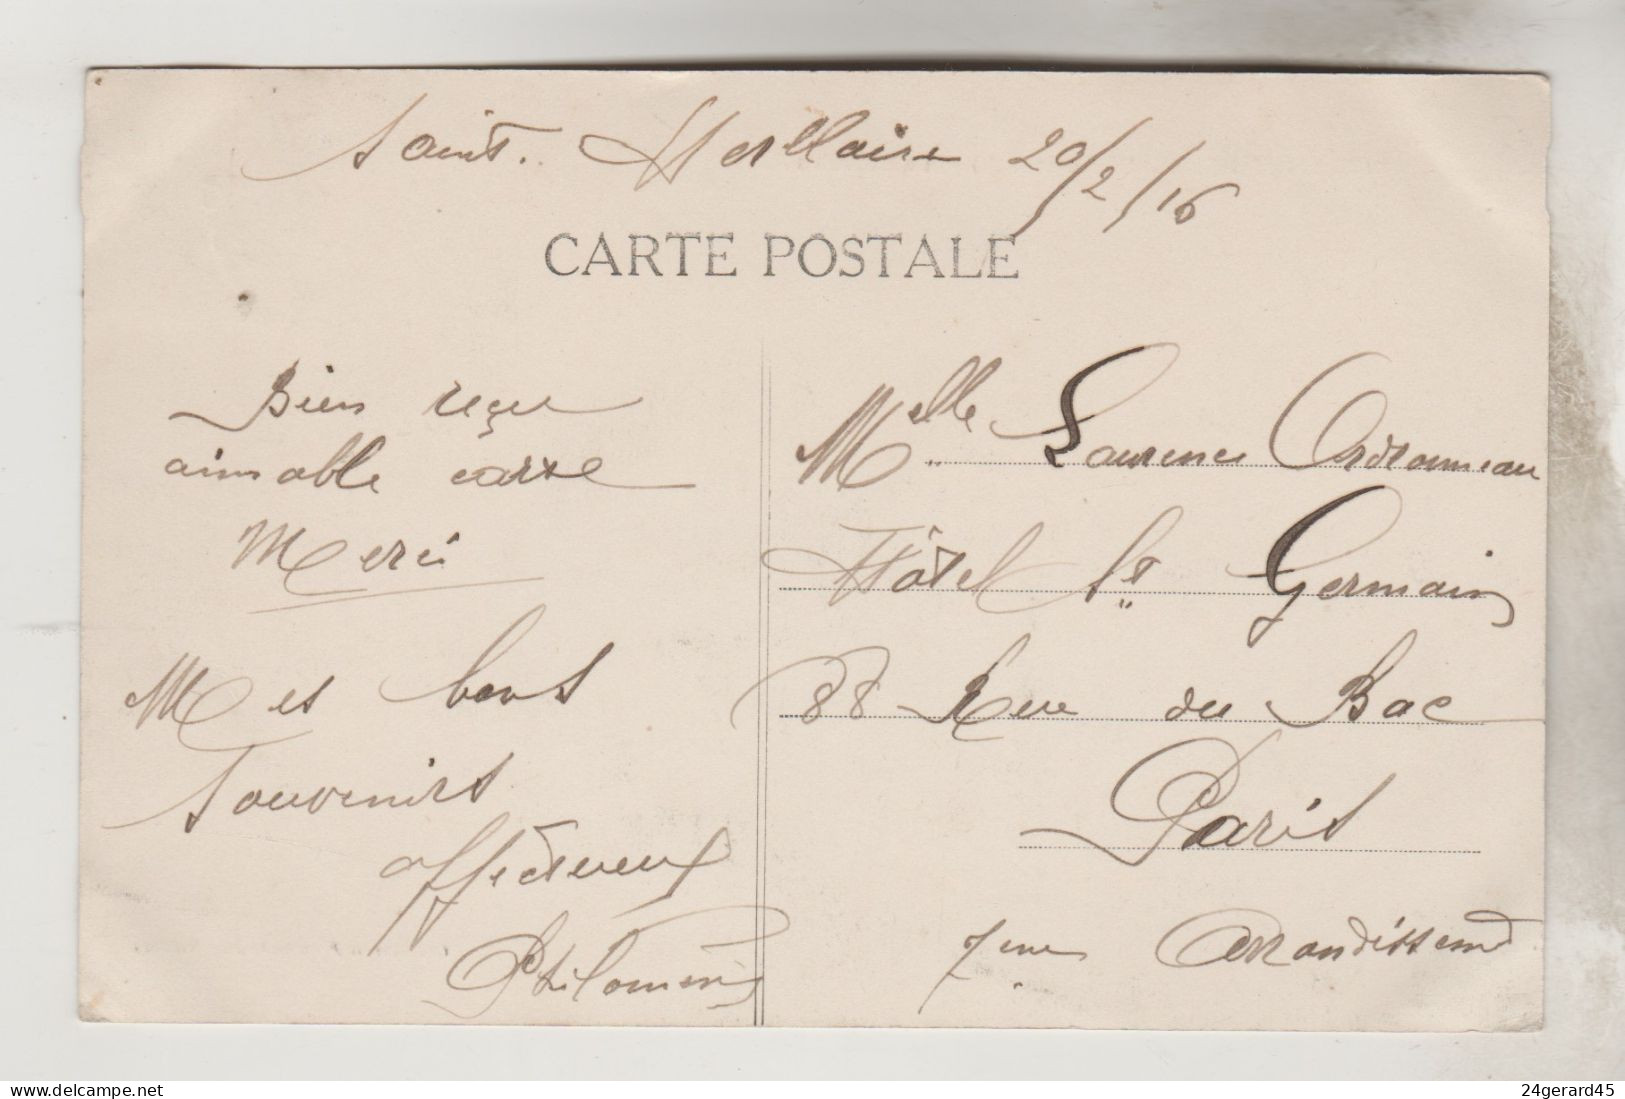 Saint. Hellaire 20/2/16
CARTE POSTALE
Bien reçu
aimable carte
Merci
Mes bons
Souvenirs
affectueux
Philomène
Melle Laurence Ordronneau
Hôtel St Germain
88 Rue du Bac
Paris
7eme Arrondissemt
delcampe.net
24gerard45